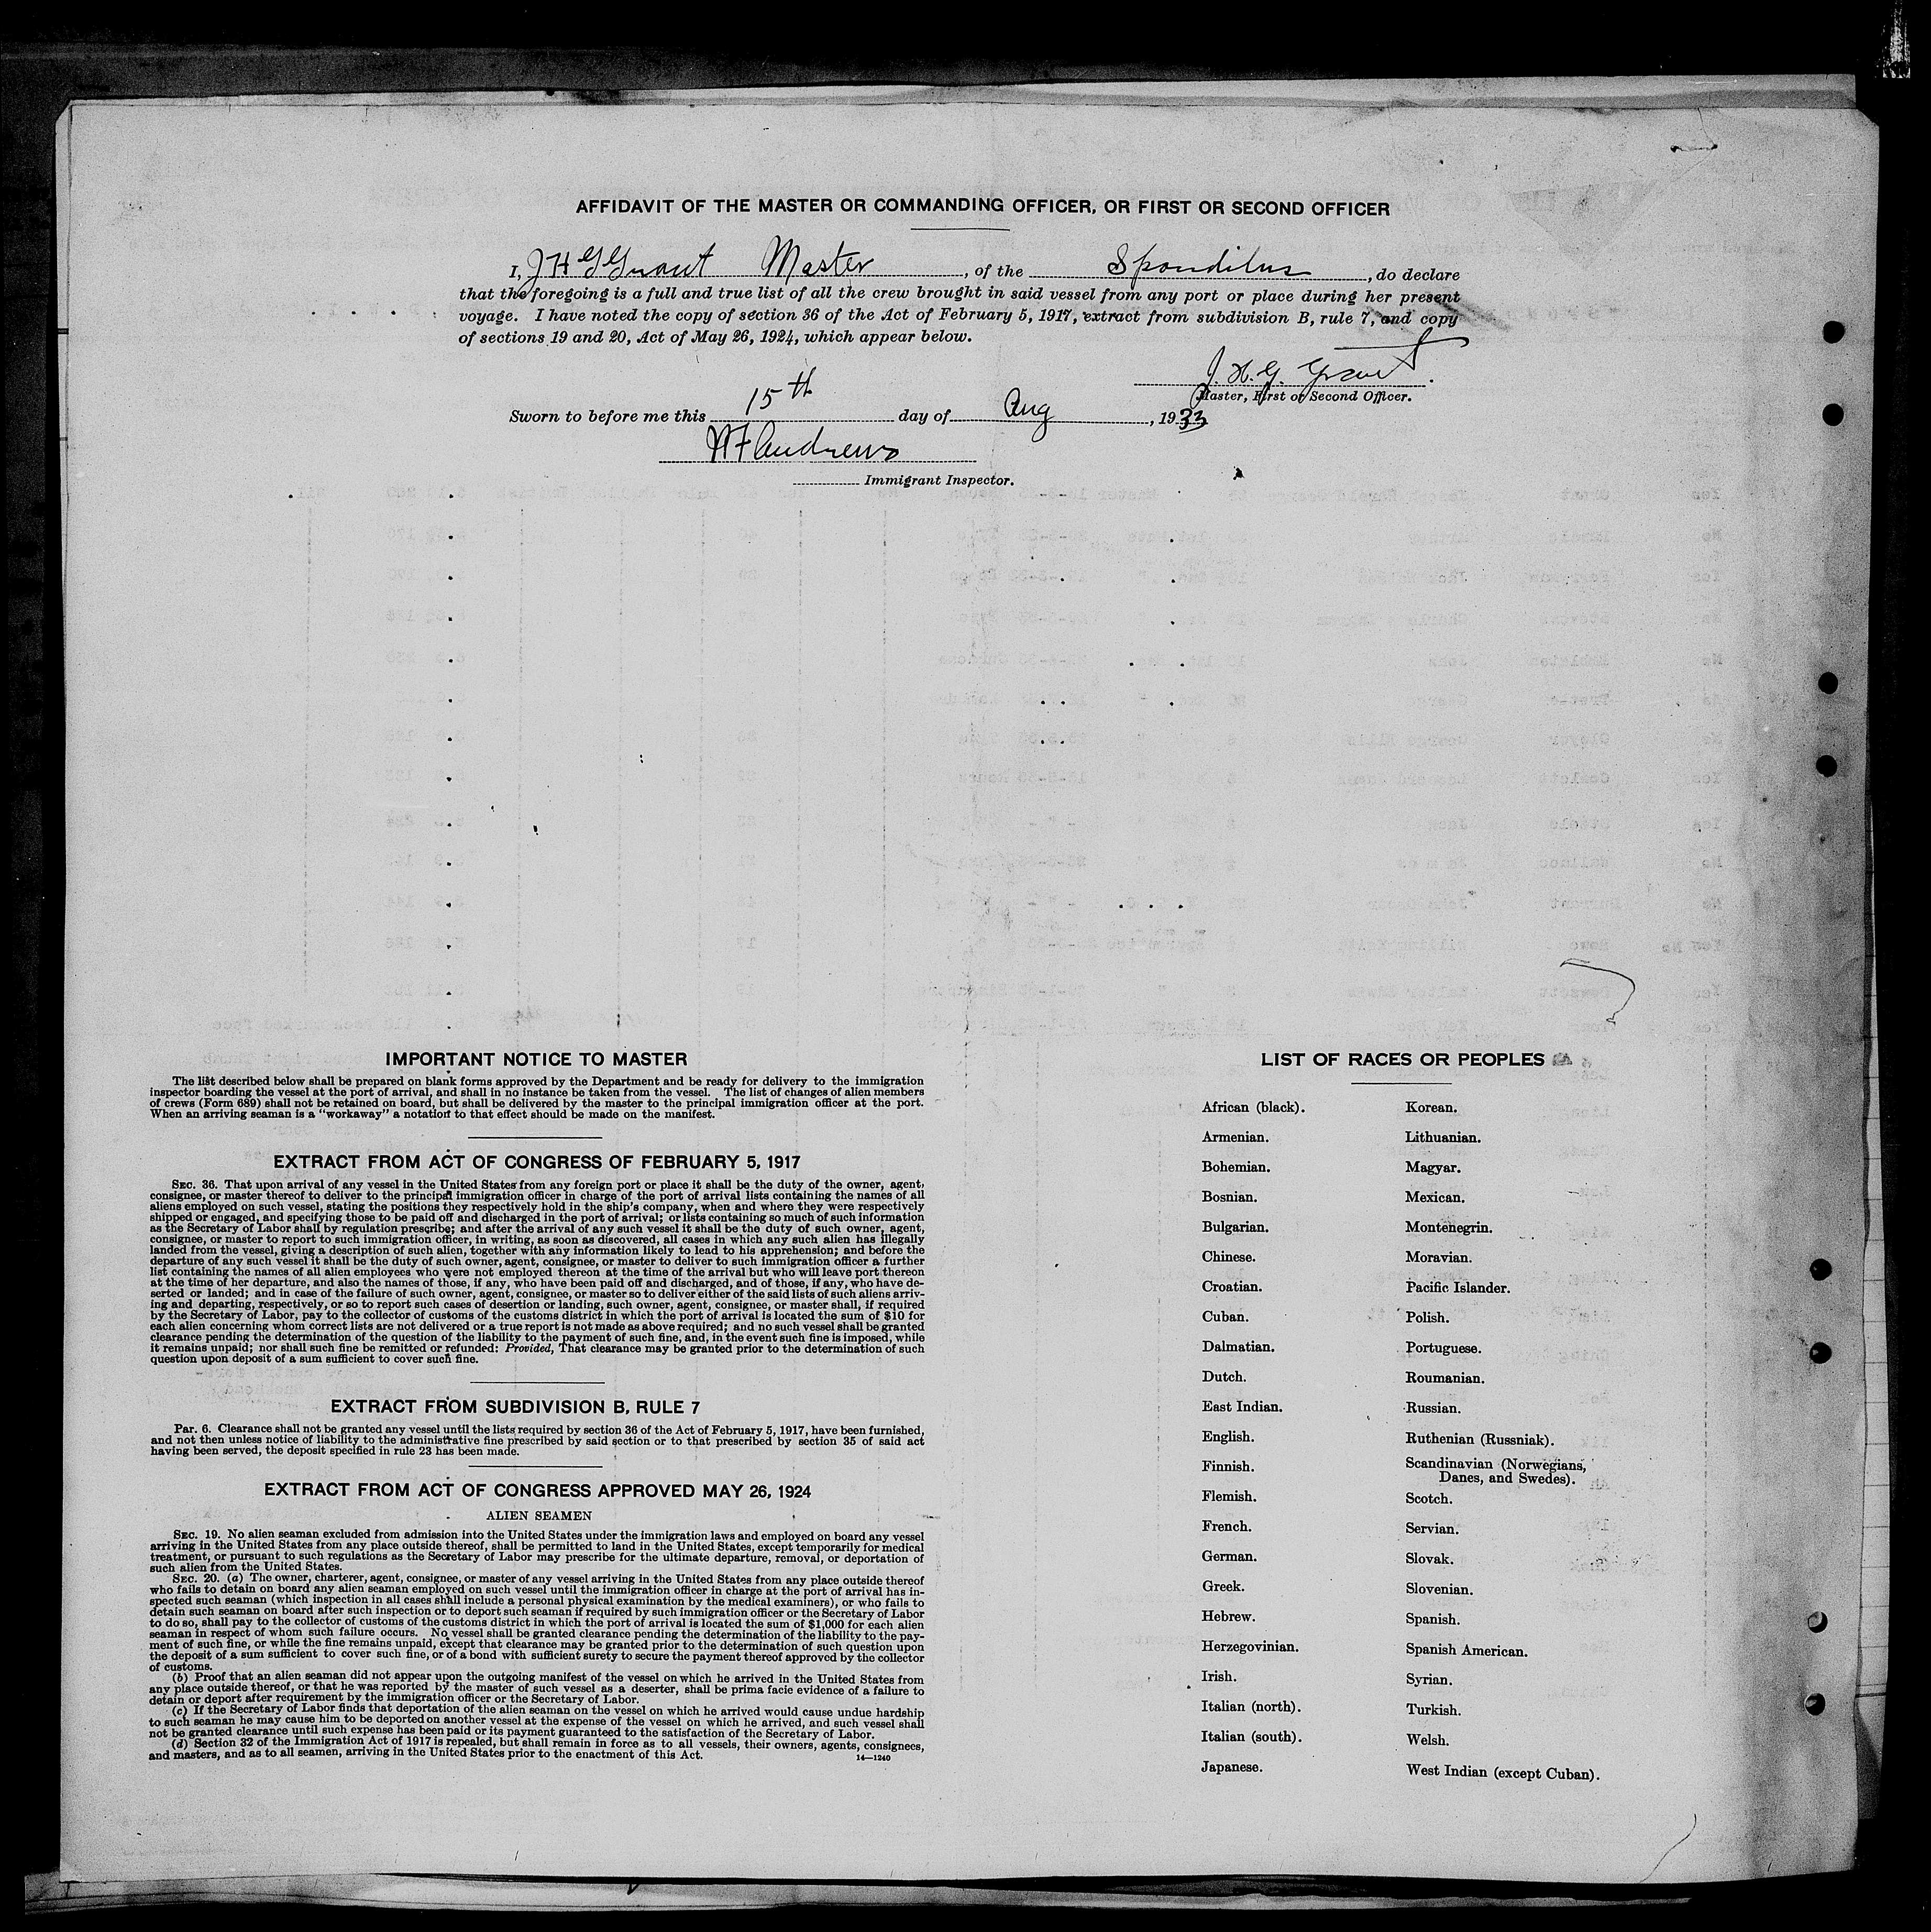 AFFIDAVIT OF THE MASTER OR COMMANDING OFFICER, OR FIRST OR SECOND OFFICER
I, J H G Grant Master, of the Spondilus, do declare
that the foregoing is a full and true list of all the crew brought in said vessel from any port or place during her present
voyage. I have noted the copy of section 36 of the Act of February 5, 1917, extract from subdivision B, rule 7, and copy
of sections 19 and 20, Act of May 26, 1924, which appear below.
J. H. G. Grant.
Master, First or Second Officer.
Sworn to before me this 15th day of Aug, 1933
Andrews
Immigrant Inspector.
IMPORTANT NOTICE TO MASTER
The list described below shall be prepared on blank forms approved by the Department and be ready for delivery to the immigration
inspector boarding the vessel at the port of arrival, and shall in no instance be taken from the vessel. The list of changes of alien members
of crews (Form 689) shall not be retained on board, but shall be delivered by the master to the principal immigration officer at the port.
When an arriving seaman is a "workaway" a notation to that effect should be made on the manifest.
EXTRACT FROM ACT OF CONGRESS OF FEBRUARY 5, 1917
SEC. 36. That upon arrival of any vessel in the United States from any foreign port or place it shall be the duty of the owner, agent,
consignee, or master thereof to deliver to the principal immigration officer in charge of the port of arrival lists containing the names of all
aliens employed on such vessel, stating the positions they respectively hold in the ship's company, when and where they were respectively
shipped or engaged, and specifying those to be paid off and discharged in the port of arrival; or lists containing so much of such information
as the Secretary of Labor shall by regulation prescribe; and after the arrival of any such vessel it shall be the duty of such owner, agent,
consignee, or master to report to such immigration officer, in writing, as soon as discovered, all cases in which any such alien has illegally
landed from the vessel, giving a description of such alien, together with any information likely to lead to his apprehension; and before the
departure of any such vessel it shall be the duty of such owner, agent, consignee, or master to deliver to such immigration officer a further
list containing the names of all alien employees who were not employed thereon at the time of the arrival but who will leave port thereon
at the time of her departure, and also the names of those, if any, who have been paid off and discharged, and of those, if any, who have de-
serted or landed; and in case of the failure of such owner, agent, consignee, or master so to deliver either of the said lists of such aliens arriv-
ing and departing, respectively, or so to report such cases of desertion or landing, such owner, agent, consignee, or master shall, if required
by the Secretary of Labor, pay to the collector of customs of the customs district in which the port of arrival is located the sum of $10 for
each alien concerning whom correct lists are not delivered or a true report is not made as above required; and no such vessel shall be granted
clearance pending the determination of the question of the liability to the payment of such fine, and, in the event such fine is imposed, while
it remains unpaid; nor shall such fine be remitted or refunded: Provided, That clearance may be granted prior to the determination of such
question upon deposit of a sum sufficient to cover such fine.
EXTRACT FROM SUBDIVISION B, RULE 7
Par. 6. Clearance shall not be granted any vessel until the lists required by section 36 of the Act of February 5, 1917, have been furnished,
and not then unless notice of liability to the administrative fine prescribed by said section or to that prescribed by section 35 of said act
having been served, the deposit specified in rule 23 has been made.
EXTRACT FROM ACT OF CONGRESS APPROVED MAY 26, 1924
ALIEN SEAMEN
SEC. 19. No alien seaman excluded from admission into the United States under the immigration laws and employed on board any vessel
arriving in the United States from any place outside thereof, shall be permitted to land in the United States, except temporarily for medical
treatment, or pursuant to such regulations as the Secretary of Labor may prescribe for the ultimate departure, removal, or deportation of
such alien from the United States.
SEC. 20. (a) The owner, charterer, agent, consignee, or master of any vessel arriving in the United States from any place outside thereof
who fails to detain on board any alien seaman employed on such vessel until the immigration officer in charge at the port of arrival has in-
spected such seaman (which inspection in all cases shall include a personal physical examination by the medical examiners), or who fails to
detain such seaman on board after such inspection or to deport such seaman if required by such immigration officer or the Secretary of Labor
to do so, shall pay to the collector of customs of the customs district in which the port of arrival is located the sum of $1,000 for each alien
seaman in respect of whom such failure occurs. No vessel shall be granted clearance pending the determination of the liability to the pay-
ment of such fine, or while the fine remains unpaid, except that clearance may be granted prior to the determination of such question upon
the deposit of a sum sufficient to cover such fine, or of a bond with sufficient surety to secure the payment thereof approved by the collector
of customs.
(b) Proof that an alien seaman did not appear upon the outgoing manifest of the vessel on which he arrived in the United States from
any place outside thereof, or that he was reported by the master of such vessel as a deserter, shall be prima facie evidence of a failure to
detain or deport after requirement by the immigration officer or the Secretary of Labor.
(c) If the Secretary of Labor finds that deportation of the alien seaman on the vessel on which he arrived would cause undue hardship
to such seaman he may cause him to be deported on another vessel at the expense of the vessel on which he arrived, and such vessel shall
not be granted clearance until such expense has been paid or its payment guaranteed to the satisfaction of the Secretary of Labor.
(d) Section 32 of the Immigration Act of 1917 is repealed, but shall remain in force as to all vessels, their owners, agents, consignees,
and masters, and as to all seamen, arriving in the United States prior to the enactment of this Act.
14—1240
LIST OF RACES OR PEOPLES
African (black).
Armenian.
Bohemian.
Bosnian.
Bulgarian.
Chinese.
Croatian.
Cuban.
Dalmatian.
Dutch.
East Indian.
English.
Finnish.
Flemish.
French.
German.
Greek.
Hebrew.
Herzegovinian.
Irish.
Italian (north).
Italian (south).
Japanese.
Korean.
Lithuanian.
Magyar.
Mexican.
Montenegrin.
Moravian.
Pacific Islander.
Polish.
Portuguese.
Roumanian.
Russian.
Ruthenian (Russniak).
Scandinavian (Norwegians,
Danes, and Swedes).
Scotch.
Servian.
Slovak.
Slovenian.
Spanish.
Spanish American.
Syrian.
Turkish.
Welsh.
West Indian (except Cuban).